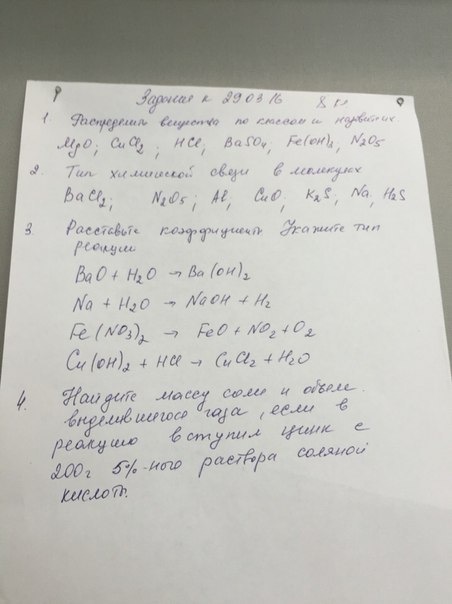 Задание к 29 03 16 8 кл
1. Распределить вещества по классам и назвать их
MgO; CuCl2; HCl, BaSO4, Fe(OH)2, N2O5
2. Тип химической связи в молекулах
BaCl2; N2O5; Al, CuO; K2S, Na, H2S
3. Расставьте коэффициенты Укажите тип
реакции
BaO + H2O → Ba(OH)2
Na + H2O → NaOH + H2
Fe(NO3)2 → FeO + NO2 + O2
Cu(OH)2 + HCl → CuCl2 + H2O
4. Найдите массу соли и объем
выделившегося газа, если в
реакцию вступил цинк с
200г 5%-ного раствора соляной
кислоты.